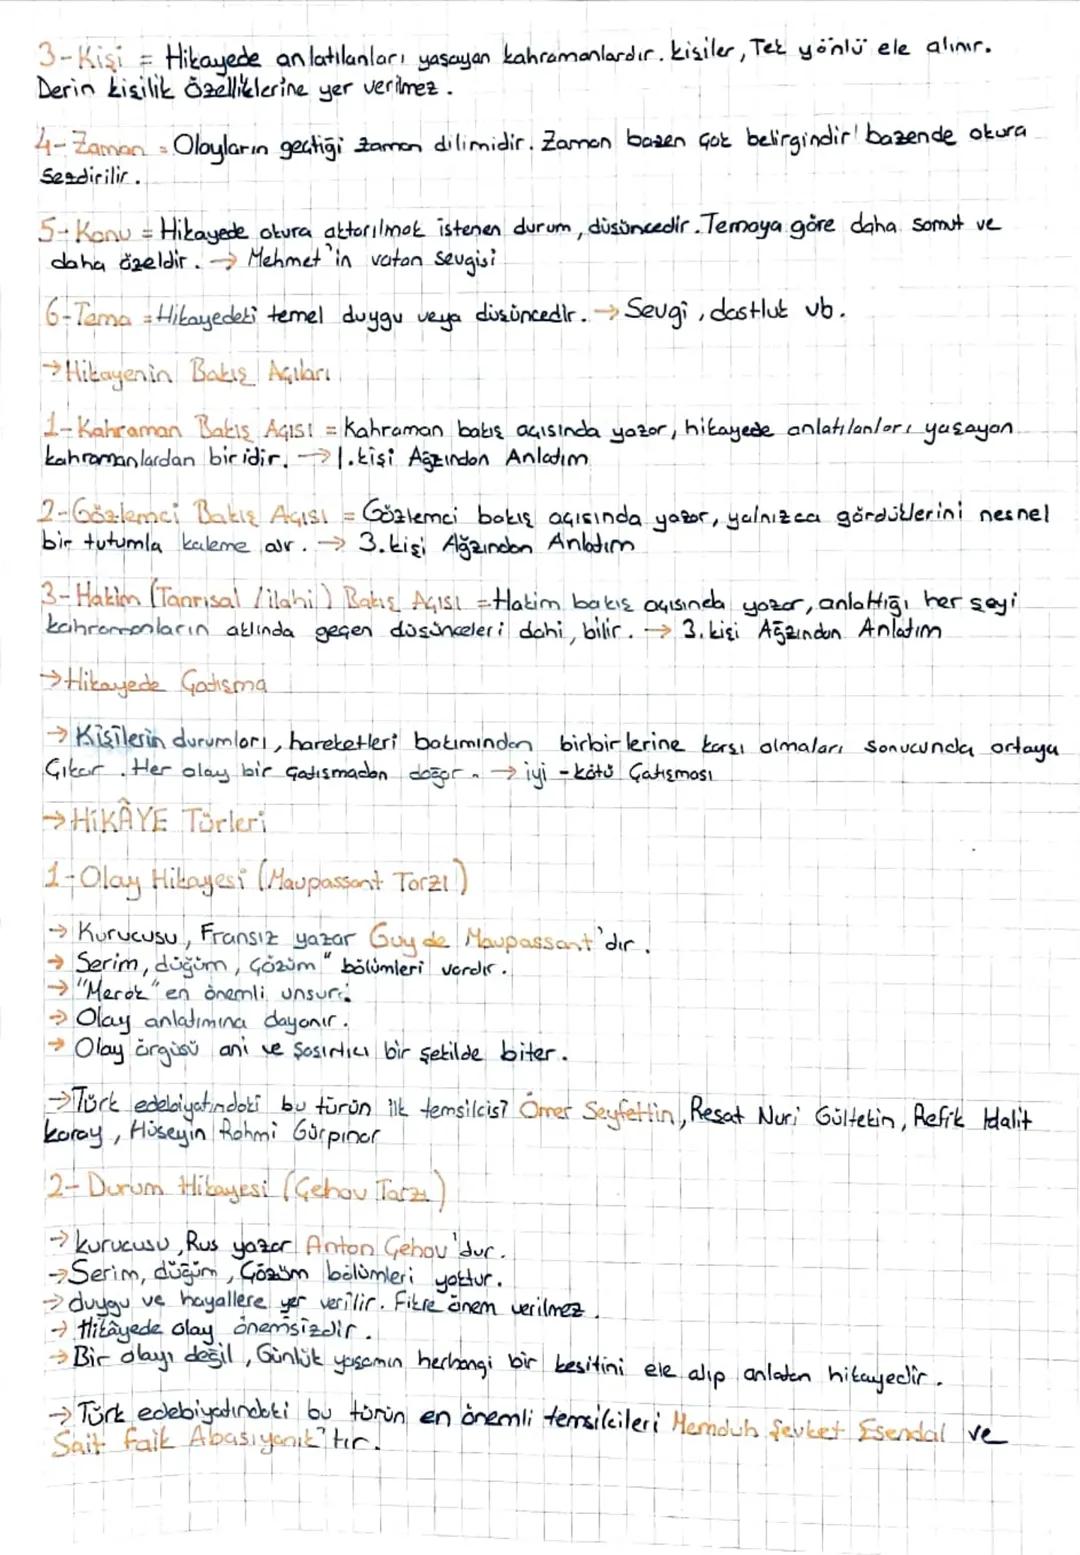 3-Kişi = Hikayede anlatılanları yaşayan kahramanlardır. Kişiler, Tek yönlü ele alınır.
Derin kişilik Özelliklerine yer verilmez.
4-Zaman = Olayların geçtiği zaman dilimidir. Zaman bazen çok belirgindir! bazende okura
Sezdirilir.
5-Konu = Hikayede okura aktarılmak istenen durum, düşüncedir. Temaya göre daha somut ve
daha özeldir. → Mehmet'in vatan sevgisi
6-Tema = Hikayedeki temel duygu veya düşüncedir. → Sevgi, dostluk vb.
→ Hikayenin Bakış Açıları
1-Kahraman Bakış Açısı = Kahraman bakış açısında yazar, hikayede anlatılanları yaşayan
kahramanlardan biridir. → 1.kişi Ağzından Anlatım
2-Gözlemci Bakış Açısı = Gözlemci bakış açısında yazar, yalnızca gördüklerini nesnel
bir tutumla kaleme alır. → 3.kişi Ağzından Anlatım
3-Hakim (Tanrısal / ilahi) Bakış Açısı = Hakim bakış açısında yazar, anlattığı her şeyi
kahramanların aklında geçen düşünceleri dahi, bilir. → 3.kişi Ağzından Anlatım
→ Hikayede Çatışma
→ Kişilerin durumları, hareketleri bakımından birbirlerine karşı olmaları sonucunda ortaya
Çıkar. Her olay bir çatışmadan doğar. → iyi - kötü Çatışması
→ HİKÂYE Türleri
1-Olay Hikayesi (Maupassant Tarzı)
→ Kurucusu, Fransız yazar Guy de Maupassant'dır.
→ Serim, düğüm, çözüm" bölümleri vardır.
→ "Merak" en önemli unsur.
→ Olay anlatımına dayanır.
→ Olay örgüsü ani ve şaşırtıcı bir şekilde biter.
→ Türk edebiyatındaki bu türün ilk temsilcisi Ömer Seyfettin, Reşat Nuri Gültekin, Refik Halit
Karay, Hüseyin Rahmi Gürpınar
2- Durum Hikayesi (Çehov Tarzı)
→ kurucusu, Rus yazar Anton Çehov'dur.
→ Serim, düğüm, Çözüm bölümleri yoktur.
→ duygu ve hayallere yer verilir. Fikre önem verilmez.
→ Hikâyede olay önemsizdir.
→ Bir olayı değil, Günlük yaşamın herhangi bir kesitini ele alıp anlatan hikayedir.
→ Türk edebiyatındaki bu türün en önemli temsilcileri Memduh Şevket Esendal ve
Sait Faik Abasıyanık'tır.